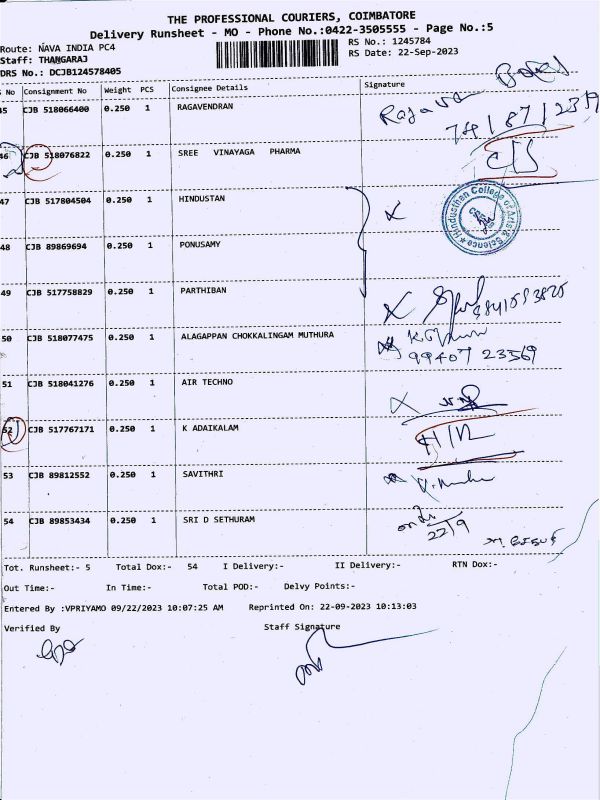 THE PROFESSIONAL COURIERS, COIMBATORE
Delivery Runsheet - MO - Phone No.:0422-3505555 - Page No.:5
Route: NAVA INDIA PC4
RS No.: 1245784
Staff: THANGARAJ
RS Date: 22-Sep-2023
DRS No.: DCJB124578405
S No Consignment No Weight PCS Consignee Details Signature
45 CJB 518066400 0.250 1 RAGAVENDRAN Ragava
46 CJB 518076822 0.250 1 SREE VINAYAGA PHARMA
47 CJB 517804504 0.250 1 HINDUSTAN
Hindusthan College of Arts & Science
48 CJB 89869694 0.250 1 PONUSAMY
49 CJB 517758829 0.250 1 PARTHIBAN
50 CJB 518077475 0.250 1 ALAGAPPAN CHOKKALINGAM MUTHURA
99407 23569
51 CJB 518041276 0.250 1 AIR TECHNO
52 CJB 517767171 0.250 1 K ADAIKALAM
53 CJB 89812552 0.250 1 SAVITHRI
54 CJB 89853434 0.250 1 SRI D SETHURAM
22/9
Tot. Runsheet:- 5 Total Dox:- 54 I Delivery:- II Delivery:- RTN Dox:-
Out Time:- In Time:- Total POD:- Delvy Points:-
Entered By :VPRIYAMO 09/22/2023 10:07:25 AM Reprinted On: 22-09-2023 10:13:03
Verified By Staff Signature